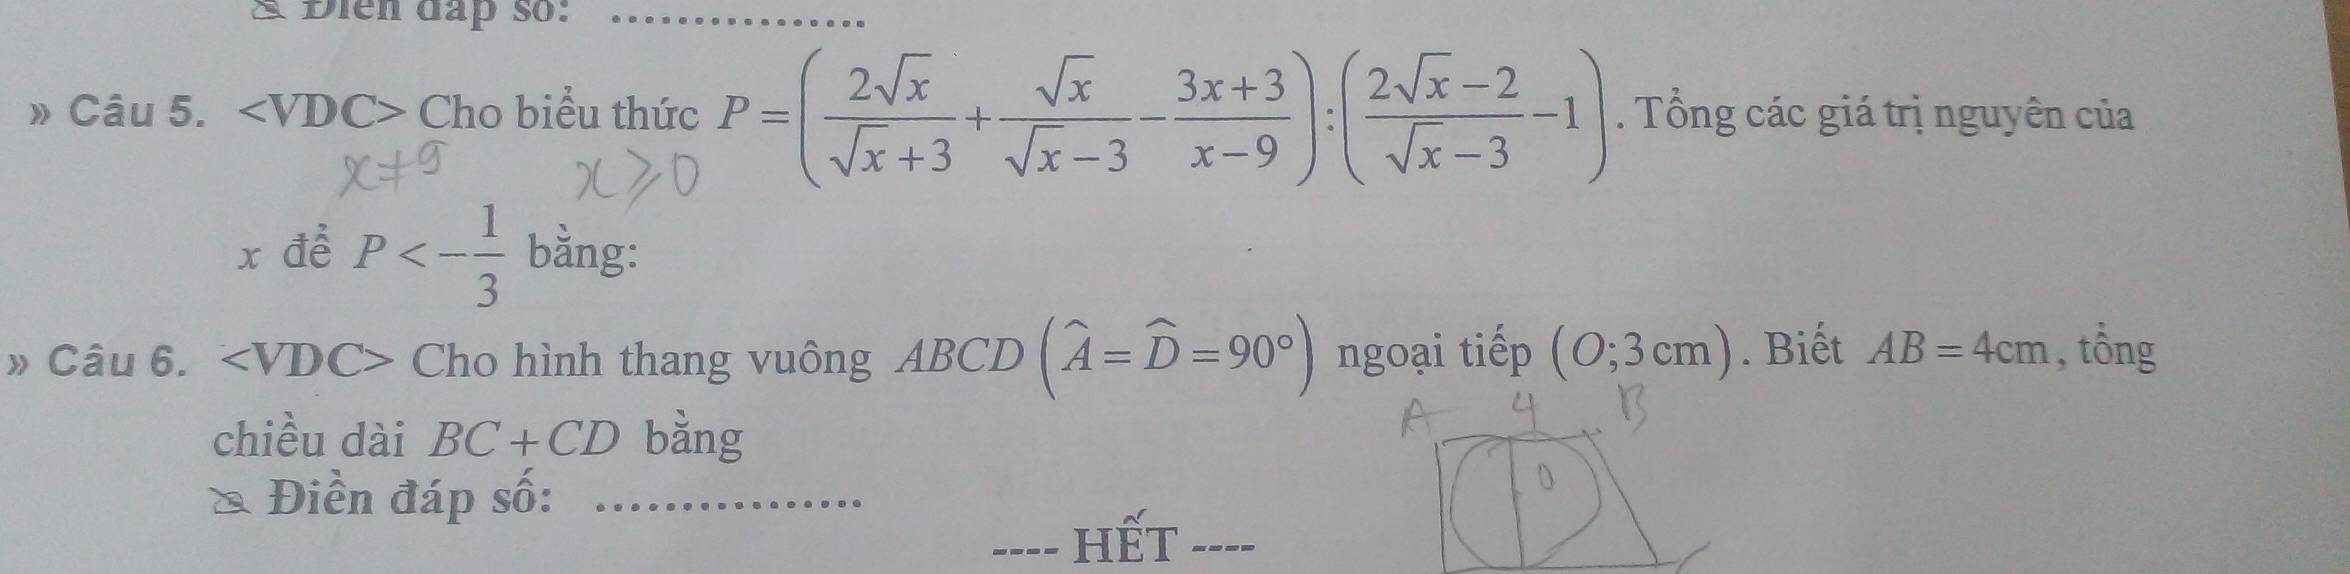 Điền đáp số: .................
» Câu 5. <VDC> Cho biểu thức P = (2√x/(√x+3) + √x/(√x−3) − (3x+3)/(x−9)) : ((2√x−2)/(√x−3) −1). Tổng các giá trị nguyên của
x≠9 x⩾0
x để P < −1/3 bằng:
» Câu 6. <VDC> Cho hình thang vuông ABCD (Â = D̂ = 90°) ngoại tiếp (O;3cm). Biết AB = 4cm, tổng
A 4 B
chiều dài BC + CD bằng
O
Điền đáp số: .................
---- HẾT ----